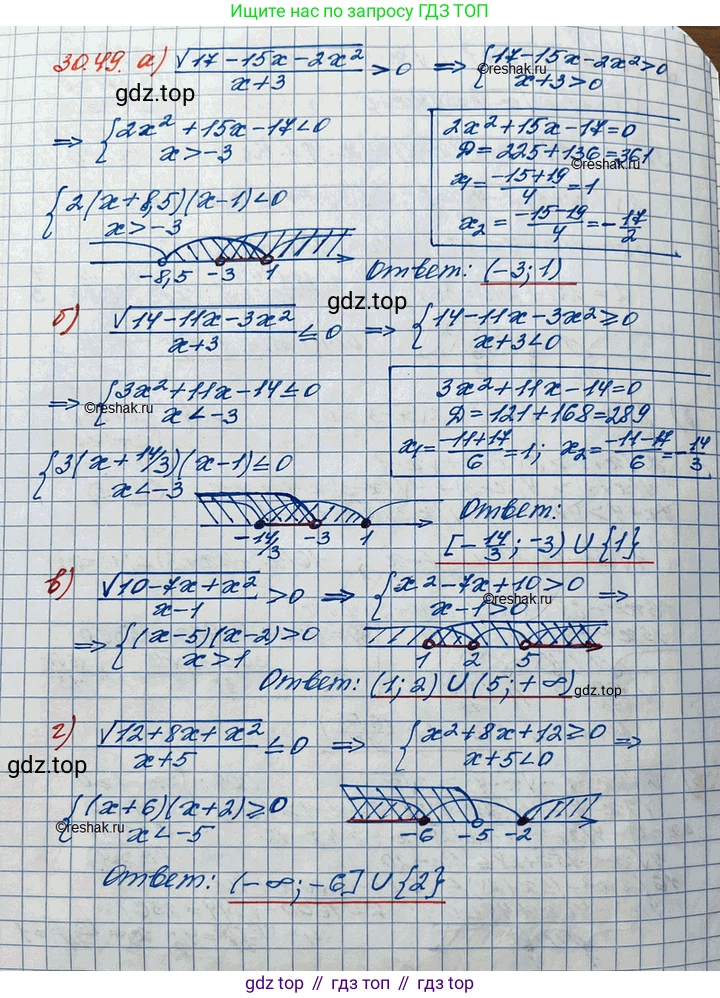 Ищите нас по запросу ГДЗ ТОП
30.49. а) √(17-15x-2x²)/(x+3) > 0 ⇒ {17-15x-2x²>0
x+3>0
gdz.top
©reshak.ru
⇒ {2x²+15x-17<0
x>-3
2x²+15x-17=0
D=225+136=361
©reshak.ru
x₁=(-15+19)/4=1
x₂=(-15-19)/4=-17/2
{2(x+8,5)(x-1)<0
x>-3
-8,5 -3 1
Ответ: (-3; 1)
gdz.top
б) √(14-11x-3x²)/(x+3) ≤ 0 ⇒ {14-11x-3x²≥0
x+3<0
⇒ {3x²+11x-14≤0
x<-3
©reshak.ru
3x²+11x-14=0
D=121+168=289
x₁=(-11+17)/6=1; x₂=(-11-17)/6=-14/3
{3(x+14/3)(x-1)≤0
x<-3
-14/3 -3 1
Ответ:
[-14/3; -3) ∪ {1}
в) √(10-7x+x²)/(x-1) > 0 ⇒ {x²-7x+10>0
x-1>0 ⇒
©reshak.ru
⇒ {(x-5)(x-2)>0
x>1
1 2 5
Ответ: (1; 2) ∪ (5; +∞)
gdz.top
г) √(12+8x+x²)/(x+5) ≤ 0 ⇒ {x²+8x+12≥0
x+5<0 ⇒
gdz.top
{(x+6)(x+2)≥0
x<-5
©reshak.ru
-6 -5 -2
Ответ: (-∞; -6] ∪ {2}
gdz.top // гдз топ // gdz.top